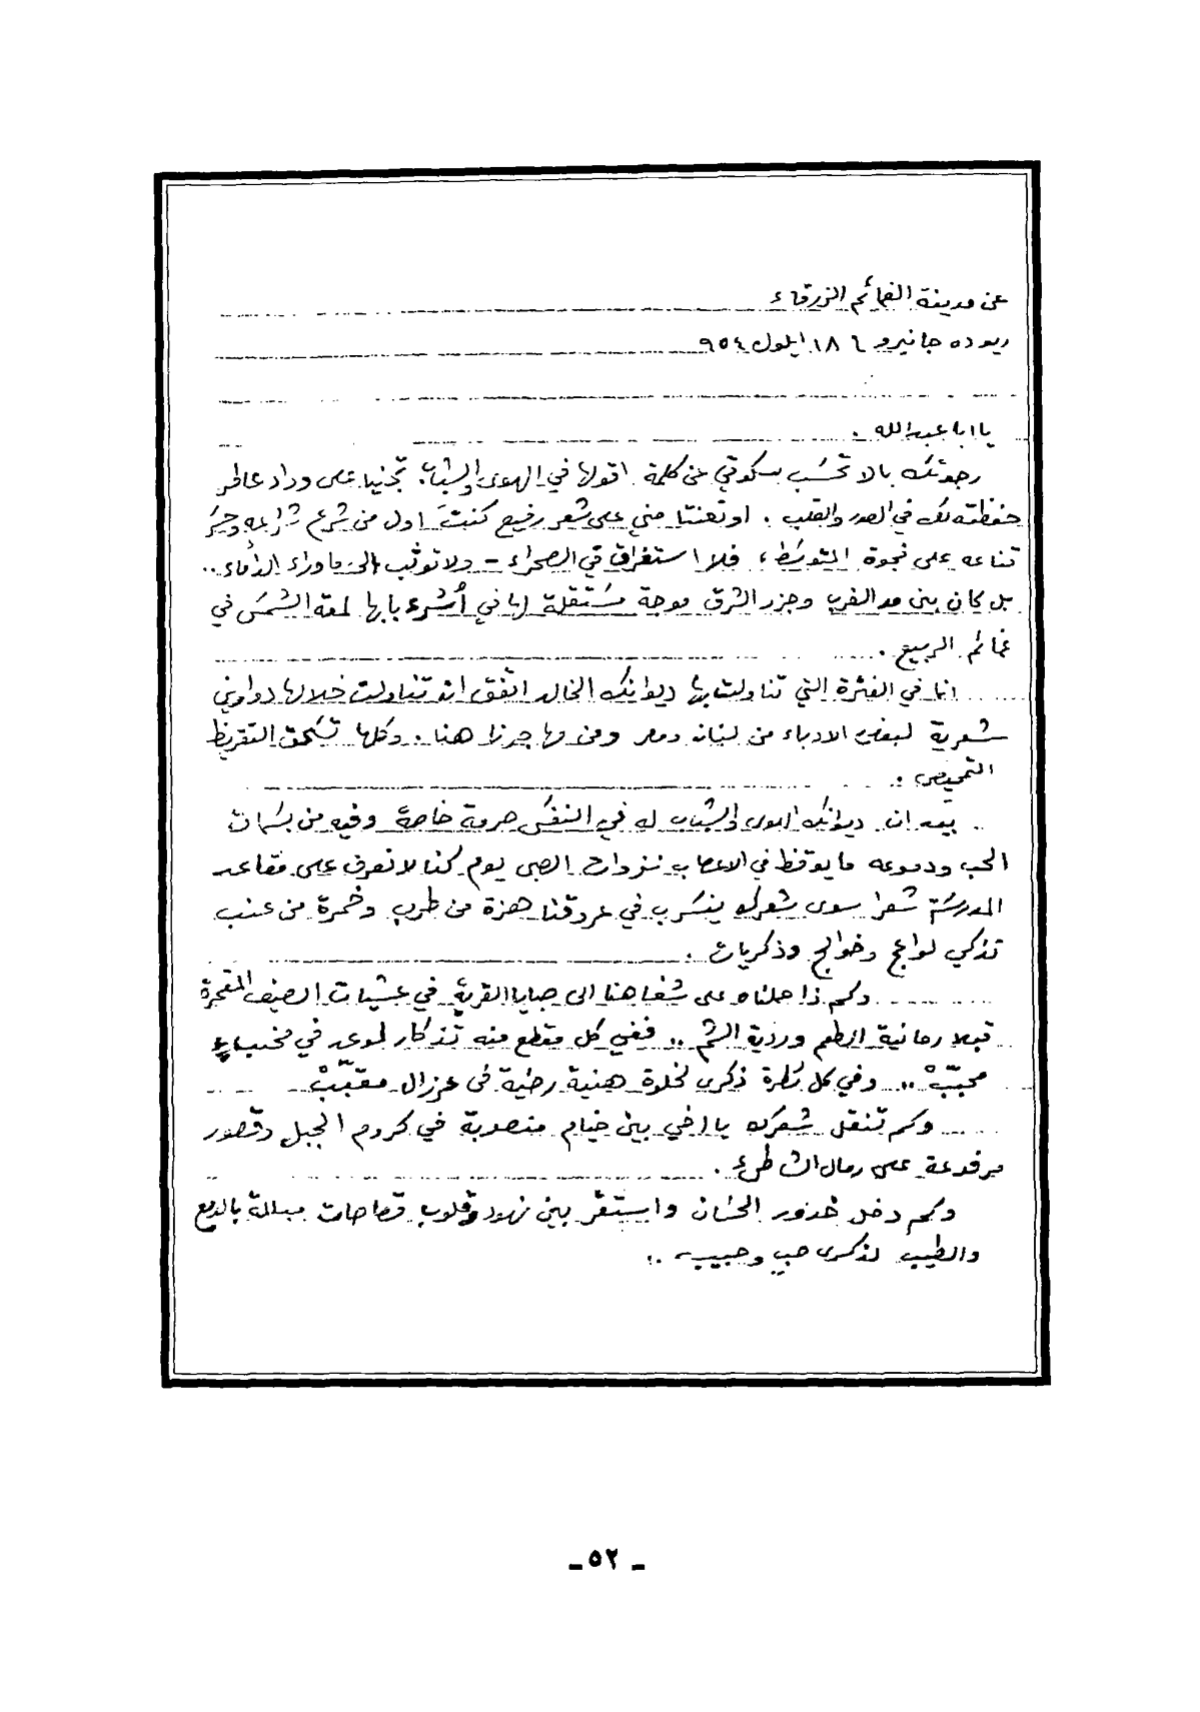 عن مدينة الغمائم الزرقاء
ريو ده جانيرو ١٨٦ ايلول ٩٥٤
يا ابا عبدالله .
رجوتك بالا تحسَب سكوتي عن كلمة اقولها في الهوى والشباب تجنيا على وداد عاطر
حفظته لك في الصدر والقلب . او تعنتا مني على شعر رفيع كنتَ اول من شرع شراعه
على فجوة المتوسّط ، فلا استغراق في الصحراء - ولا توثّب الى ما وراء الدأماء ..
بل كان بين مد الغرب وجزر الشرق موجة مستقلة لها في أشرعابها لمعة الشمس في
غمائم الربيع .
انما في الفترة التي تناولت بها ديوانك الخالد اتّفق ان تناولت خلالها دواوين
شعرية لبعض الادباء من لبنان ومصر ومن مهاجرنا هنا . وكلها تستحق التقريظ
التمحيص .
بيد ان ديوانك الهوى والشباب له في النفس حرمة خاصة وفيه من بسَمات
الحب ودموعه ما يوقظ في الاعصاب نزوات الصبى يوم كنا لا نعرف على مقاعد
المدرسَة شعرا سوى شعرك ينسَرب في عروقنا هزة من طرب وخمرة من عنب
تذكي لواعج وخوالج وذكريات .
وكم ذا حملناه على شفاهنا الى صبايا القرية في عشيات الصيف المقمرة
قبلا رمانية الطعم وردية الشم .. ففي كل مقطع منه تذكار لموعد في مخبىء
محبّبْ .. وفي كل نظرة ذكرى لخلوة هنية رضيّة في عرزال مقبّبْ
وكم تنقل شعرك يا اخي بين خيام منصوبة في كروم الجبل وقصور
مرفوعة على رمال الشاطىء .
وكم دخل خدور الحسَان واستقر بين نهود وقلوب قصاصات مبللة بالدمع
والطيب لذكرى حب وحبيب ..
ـ ٥٢ ـ